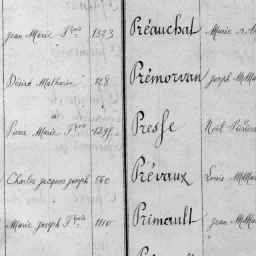 Jean Marie Fçois 1323 Préauchat Marie
Désiré Mathurin 128 Prémorvan Joseph M
Pierre Marie Fçois Presse Noël
Charles Jacques Joseph 560 Prévaux Louis M
Marie Joseph Fçois 1110 Primault Jean M